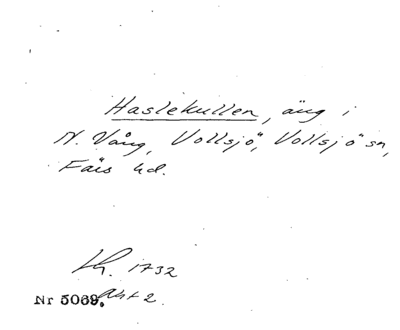 Haslekullen, äng i
N. Vång, Vollsjö, Vollsjö sn,
Färs hd.
Lh. 1732
akt 2.
Nr 5069.